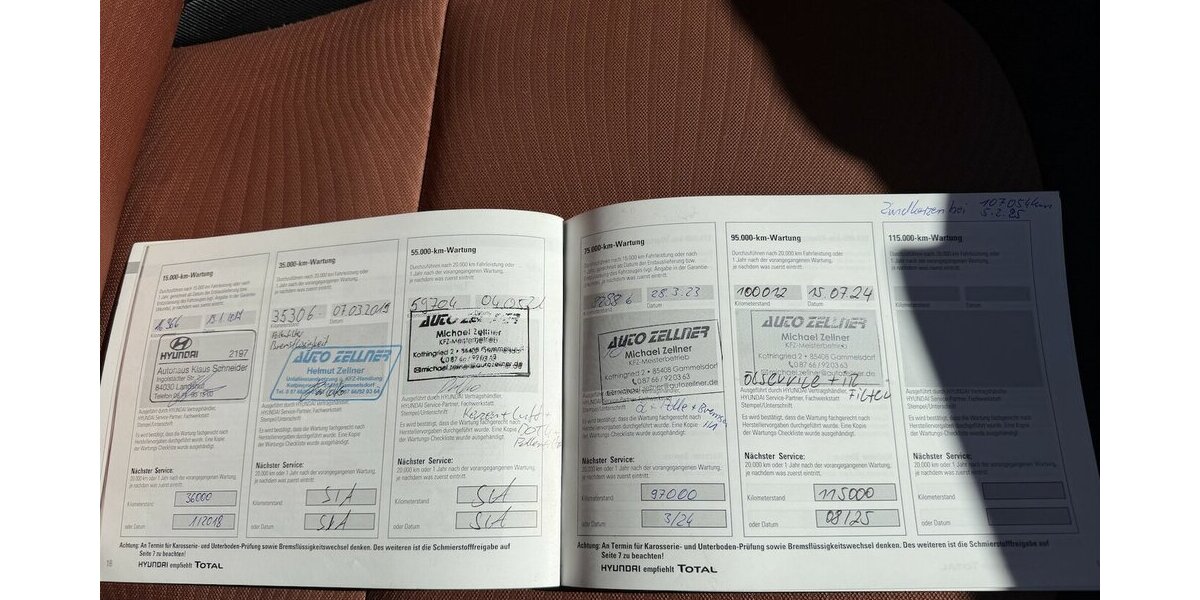 15.000-km-Wartung
Durchzuführen nach 15.000 km Fahrleistung oder
Kilometerstand Datum
HYUNDAI 2197
Autohaus Klaus Schneider
84030 Landshut
Ausgeführt durch HYUNDAI Vertragshändler,
HYUNDAI Service-Partner, Fachwerkstatt
Stempel/Unterschrift
Es wird bestätigt, dass die Wartung fachgerecht nach
Herstellervorgaben durchgeführt wurde. Eine Kopie
der Wartungs-Checkliste wurde ausgehändigt.
Nächster Service:
20.000 km oder 1 Jahr nach der vorangegangenen Wartung,
je nachdem was zuerst eintritt.
Kilometerstand 36000
oder Datum 1 2018
35.000-km-Wartung
Durchzuführen nach 20.000 km Fahrleistung oder
1 Jahr nach der vorangegangenen Wartung,
je nachdem was zuerst eintritt.
35306 07.03.2019
Kilometerstand Datum
Bremsflüssigkeit
AUTO ZELLNER
Helmut Zellner
Ausgeführt durch HYUNDAI Vertragshändler,
HYUNDAI Service-Partner, Fachwerkstatt
Stempel/Unterschrift
Es wird bestätigt, dass die Wartung fachgerecht nach
Herstellervorgaben durchgeführt wurde. Eine Kopie
der Wartungs-Checkliste wurde ausgehändigt.
Nächster Service:
20.000 km oder 1 Jahr nach der vorangegangenen Wartung,
je nachdem was zuerst eintritt.
Kilometerstand SIA
oder Datum SIA
55.000-km-Wartung
Durchzuführen nach 20.000 km Fahrleistung oder
1 Jahr nach der vorangegangenen Wartung,
je nachdem was zuerst eintritt.
59704 04.05.21
AUTO ZELLNER
Michael Zellner
KFZ-Meisterbetrieb
Kothingried 2 • 85408 Gammelsdorf
michael.zellner@autozellner.de
Ausgeführt durch HYUNDAI Vertragshändler,
HYUNDAI Service-Partner, Fachwerkstatt
Stempel/Unterschrift
Kerzen + Luft +
Es wird bestätigt, dass die Wartung fachgerecht nach
Herstellervorgaben durchgeführt wurde. Eine Kopie
der Wartungs-Checkliste wurde ausgehändigt.
Nächster Service:
20.000 km oder 1 Jahr nach der vorangegangenen Wartung,
je nachdem was zuerst eintritt.
Kilometerstand SIA
oder Datum SIA
Achtung: An Termin für Karosserie- und Unterboden-Prüfung sowie Bremsflüssigkeitswechsel denken. Des weiteren ist die Schmierstofffreigabe auf
Seite 7 zu beachten!
18
HYUNDAI empfiehlt TOTAL
Zündkerzen bei 107.054 km
5.2.25
75.000-km-Wartung
Durchzuführen nach 20.000 km Fahrleistung oder nach
28.3.23
Kilometerstand Datum
AUTO ZELLNER
Michael Zellner
KFZ-Meisterbetrieb
Kothingried 2 • 85408 Gammelsdorf
08766/920363
michael.zellner@autozellner.de
Ausgeführt durch HYUNDAI Vertragshändler,
HYUNDAI Service-Partner, Fachwerkstatt
Stempel/Unterschrift
Es wird bestätigt, dass die Wartung fachgerecht nach
Herstellervorgaben durchgeführt wurde. Eine Kopie
der Wartungs-Checkliste wurde ausgehändigt.
Nächster Service:
20.000 km oder 1 Jahr nach der vorangegangenen Wartung,
je nachdem was zuerst eintritt.
Kilometerstand 97000
oder Datum 3/24
95.000-km-Wartung
Durchzuführen nach 20.000 km Fahrleistung oder
1 Jahr nach der vorangegangenen Wartung,
je nachdem was zuerst eintritt.
100012 15.07.24
Kilometerstand Datum
AUTO ZELLNER
Michael Zellner
KFZ-Meisterbetrieb
Kothingried 2 • 85408 Gammelsdorf
08766/920363
michael.zellner@autozellner.de
Ölservice + IR-
Filter
Ausgeführt durch HYUNDAI Vertragshändler,
HYUNDAI Service-Partner, Fachwerkstatt
Stempel/Unterschrift
Es wird bestätigt, dass die Wartung fachgerecht nach
Herstellervorgaben durchgeführt wurde. Eine Kopie
der Wartungs-Checkliste wurde ausgehändigt.
Nächster Service:
20.000 km oder 1 Jahr nach der vorangegangenen Wartung,
je nachdem was zuerst eintritt.
Kilometerstand 115000
oder Datum 08/25
115.000-km-Wartung
Durchzuführen nach 20.000 km Fahrleistung oder
1 Jahr nach der vorangegangenen Wartung,
je nachdem was zuerst eintritt.
Kilometerstand Datum
Ausgeführt durch HYUNDAI Vertragshändler,
HYUNDAI Service-Partner, Fachwerkstatt
Stempel/Unterschrift
Es wird bestätigt, dass die Wartung fachgerecht nach
Herstellervorgaben durchgeführt wurde. Eine Kopie
der Wartungs-Checkliste wurde ausgehändigt.
Nächster Service:
20.000 km oder 1 Jahr nach der vorangegangenen Wartung,
je nachdem was zuerst eintritt.
Kilometerstand
oder Datum
Achtung: An Termin für Karosserie- und Unterboden-Prüfung sowie Bremsflüssigkeitswechsel denken. Des weiteren ist die Schmierstofffreigabe auf
Seite 7 zu beachten!
HYUNDAI empfiehlt TOTAL